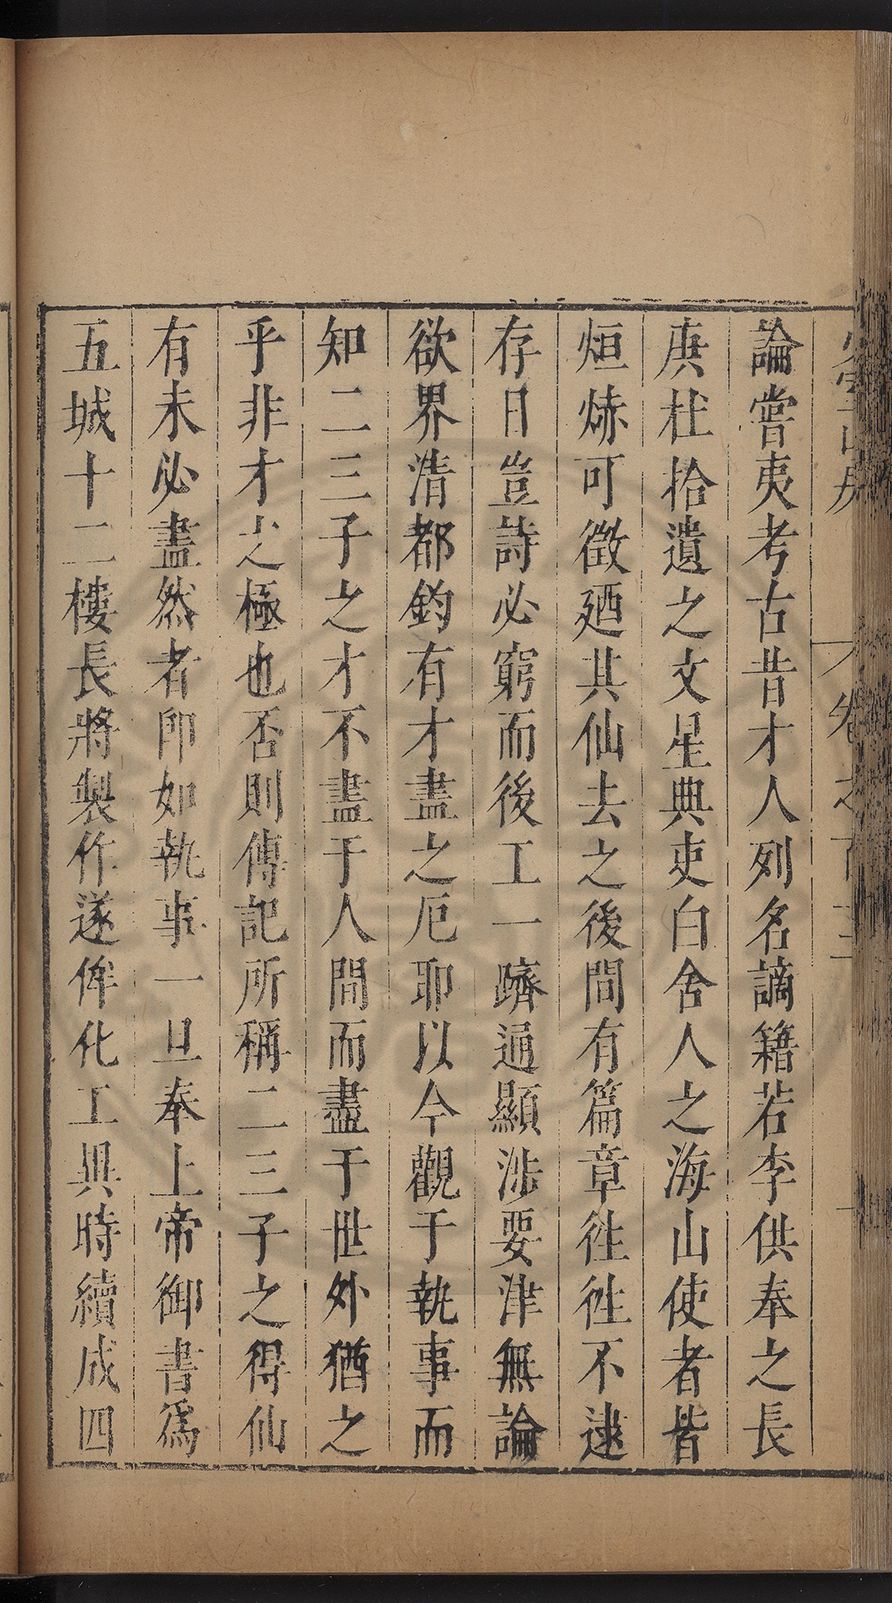 論嘗夷考古昔才人列名謫籍若李供奉之長
庚杜拾遺之文星典吏白舍人之海山使者皆
烜爀可徵廼其仙去之後間有篇章徃徃不逮
存日豈詩必窮而後工一躋通顯涉要津無論
欲界清都鈞有才盡之厄耶以今觀于執事而
知二三子之才不盡于人間而盡于世外猶之
乎非才之極也否則傳記所稱二三子之得仙
有未必盡然者卽如執事一旦奉上帝御書爲
五城十二樓長將製作遂侔化工與時續成四
卷之百